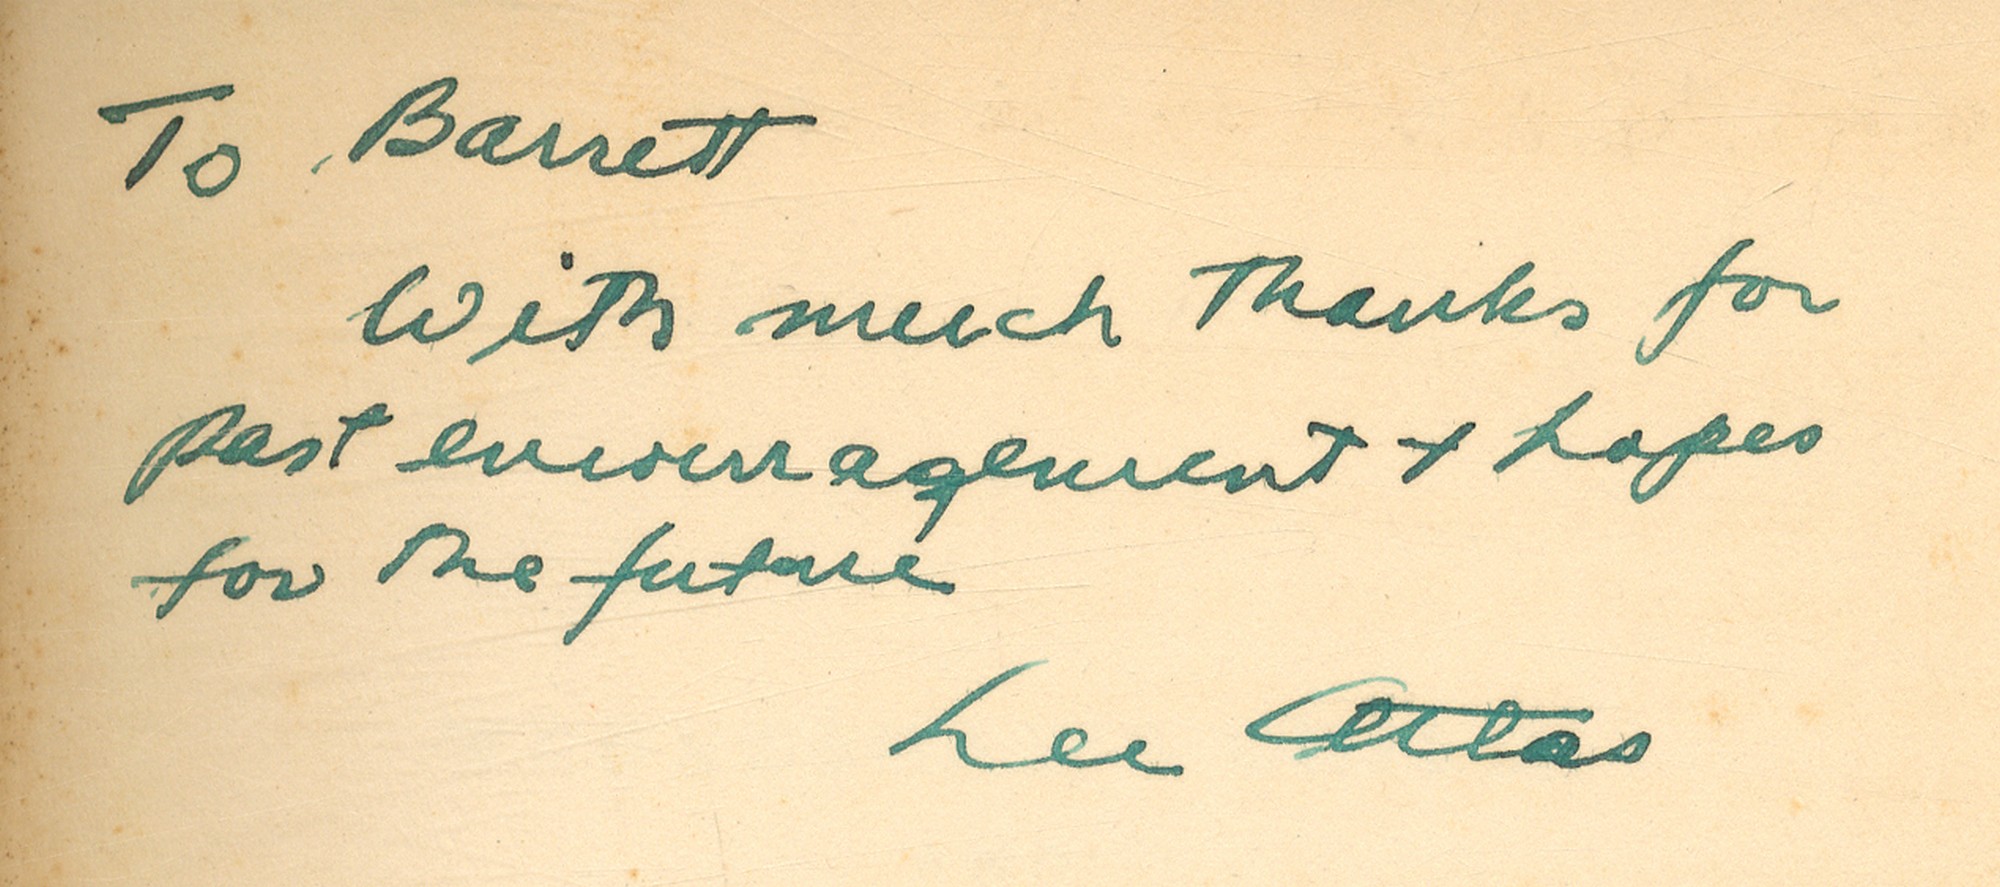 To Barrett
With much thanks for
past encouragement + hopes
for the future
Lee Atlas